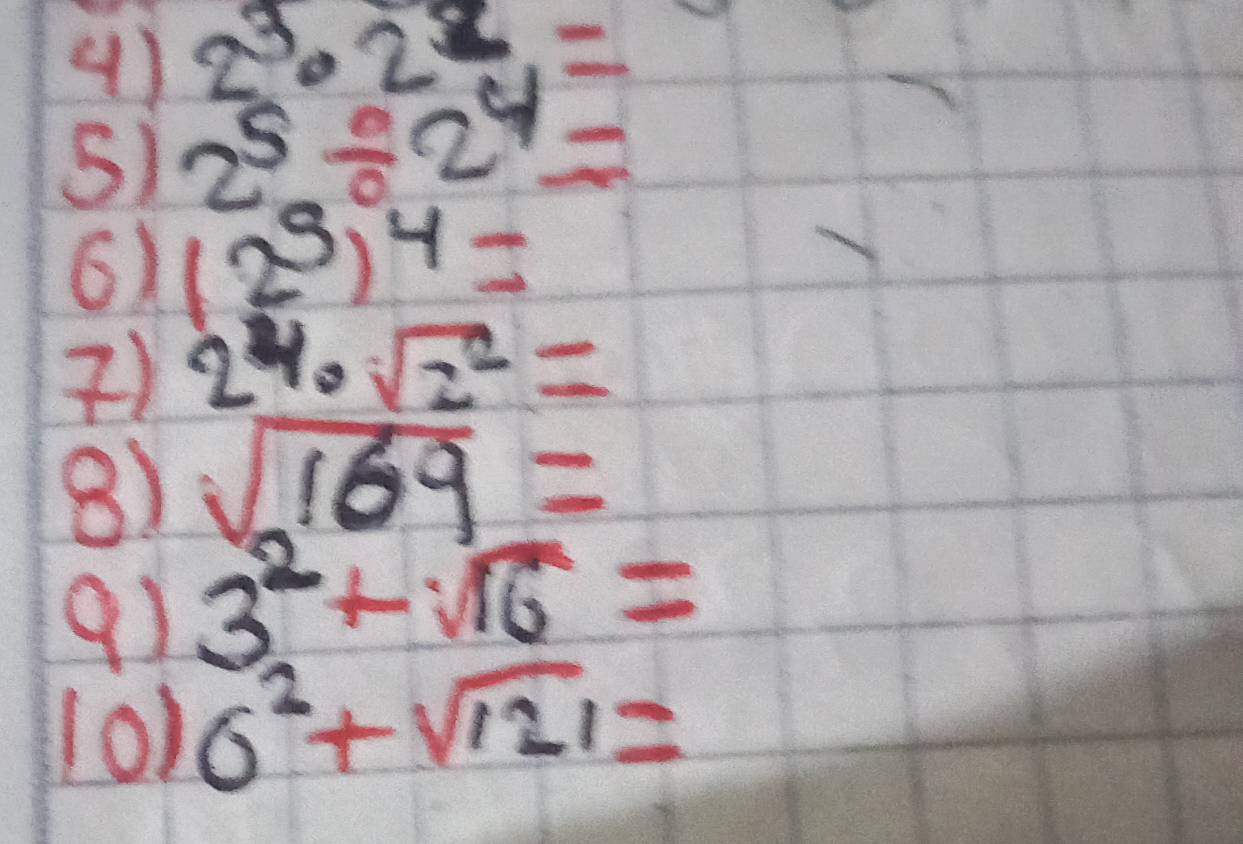 4) 2³ • 2² =
5) 2⁵ ÷ 2⁴ =
6) (2³)⁴ =
7) 2⁴ • √2² =
8) √169 =
9) 3² + √16 =
10) 6² + √121 =